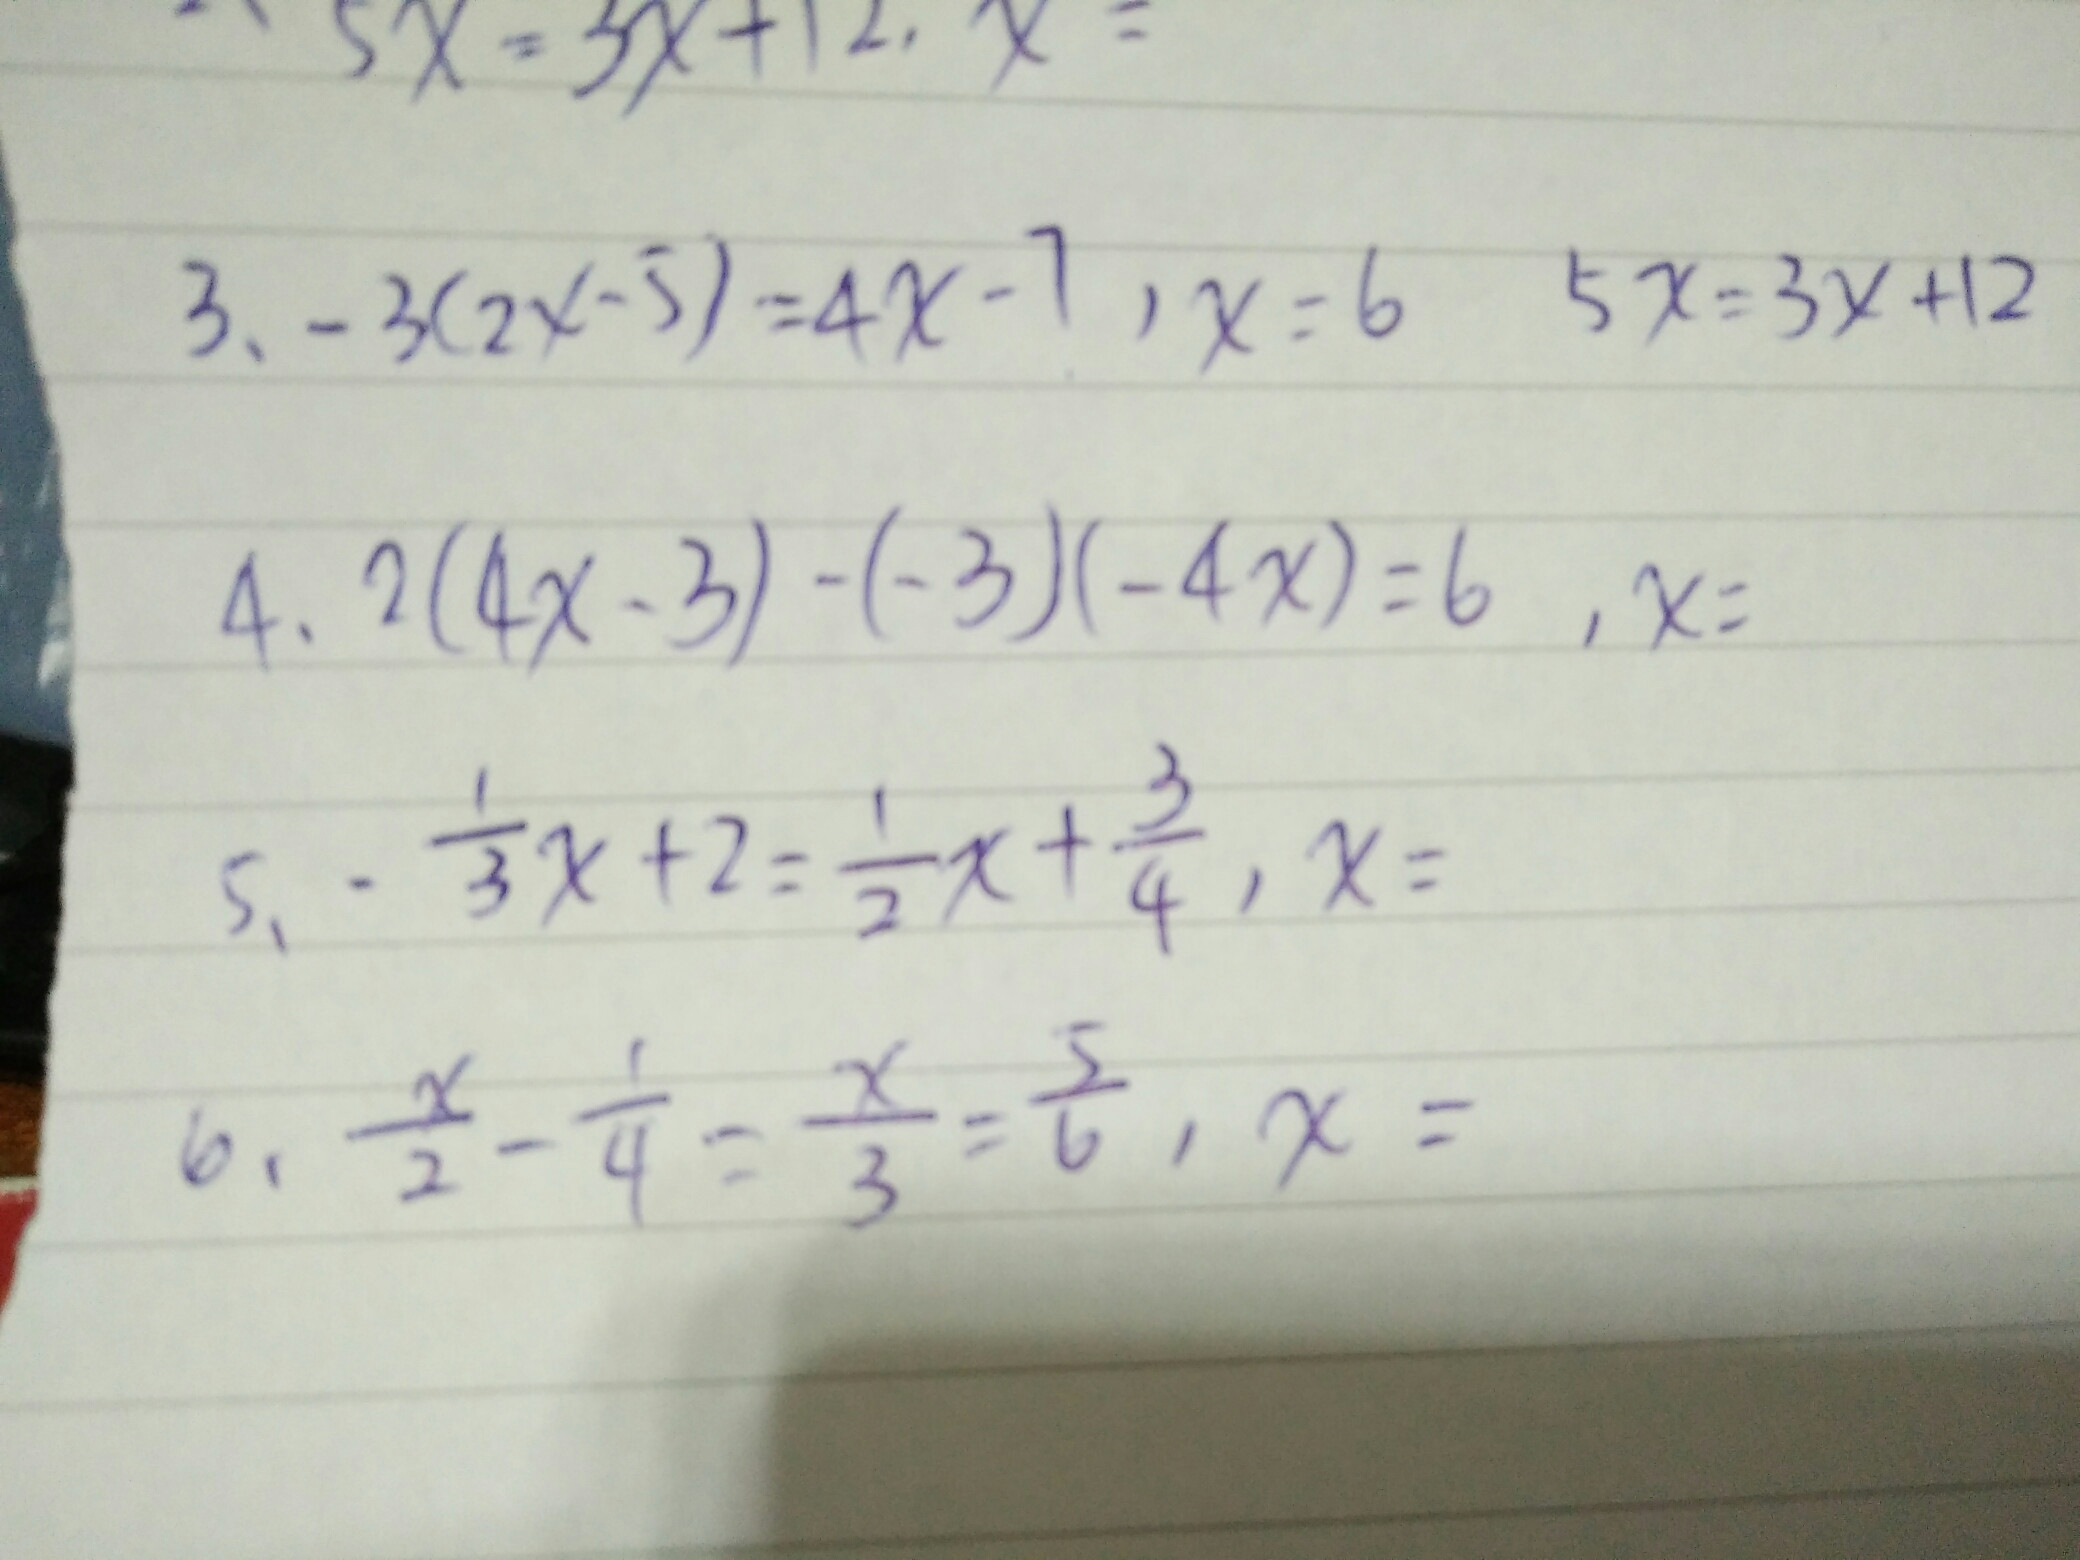 5x=3x+12. x=
3、-3(2x-5)=4x-7，x=6 5x=3x+12
4. 2(4x-3)-(-3)(-4x)=6，x=
5、-1/3x+2=1/2x+3/4，x=
6、x/2-1/4=x/3=5/6，x=